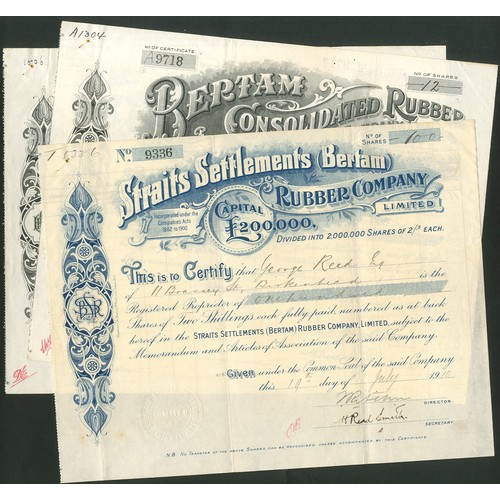 A1304
Nº OF CERTIFICATE
A9718
Nº OF SHARES
12
BERTAM
CONSOLIDATED RUBBER
Nº 9336
Nº OF SHARES
100
Straits Settlements (Bertam)
RUBBER COMPANY
LIMITED
Incorporated under the Companies Acts 1862 to 1900
CAPITAL
£200,000,
DIVIDED INTO 2,000,000 SHARES OF 2/- EACH.
This is to Certify that George Reed Esq
of 11 Brassey St, Birkenhead is the
Registered Proprietor of One hundred
Shares of Two Shillings each fully paid, numbered as at back
hereof in the STRAITS SETTLEMENTS (BERTAM) RUBBER COMPANY, LIMITED, subject to the
Memorandum and Articles of Association of the said Company.
Given under the Common Seal of the said Company
this 19th day of July 19
DIRECTOR.
H Reid Smith
SECRETARY.
N.B. No TRANSFER OF THE ABOVE SHARES CAN BE REGISTERED UNLESS ACCOMPANIED BY THIS CERTIFICATE